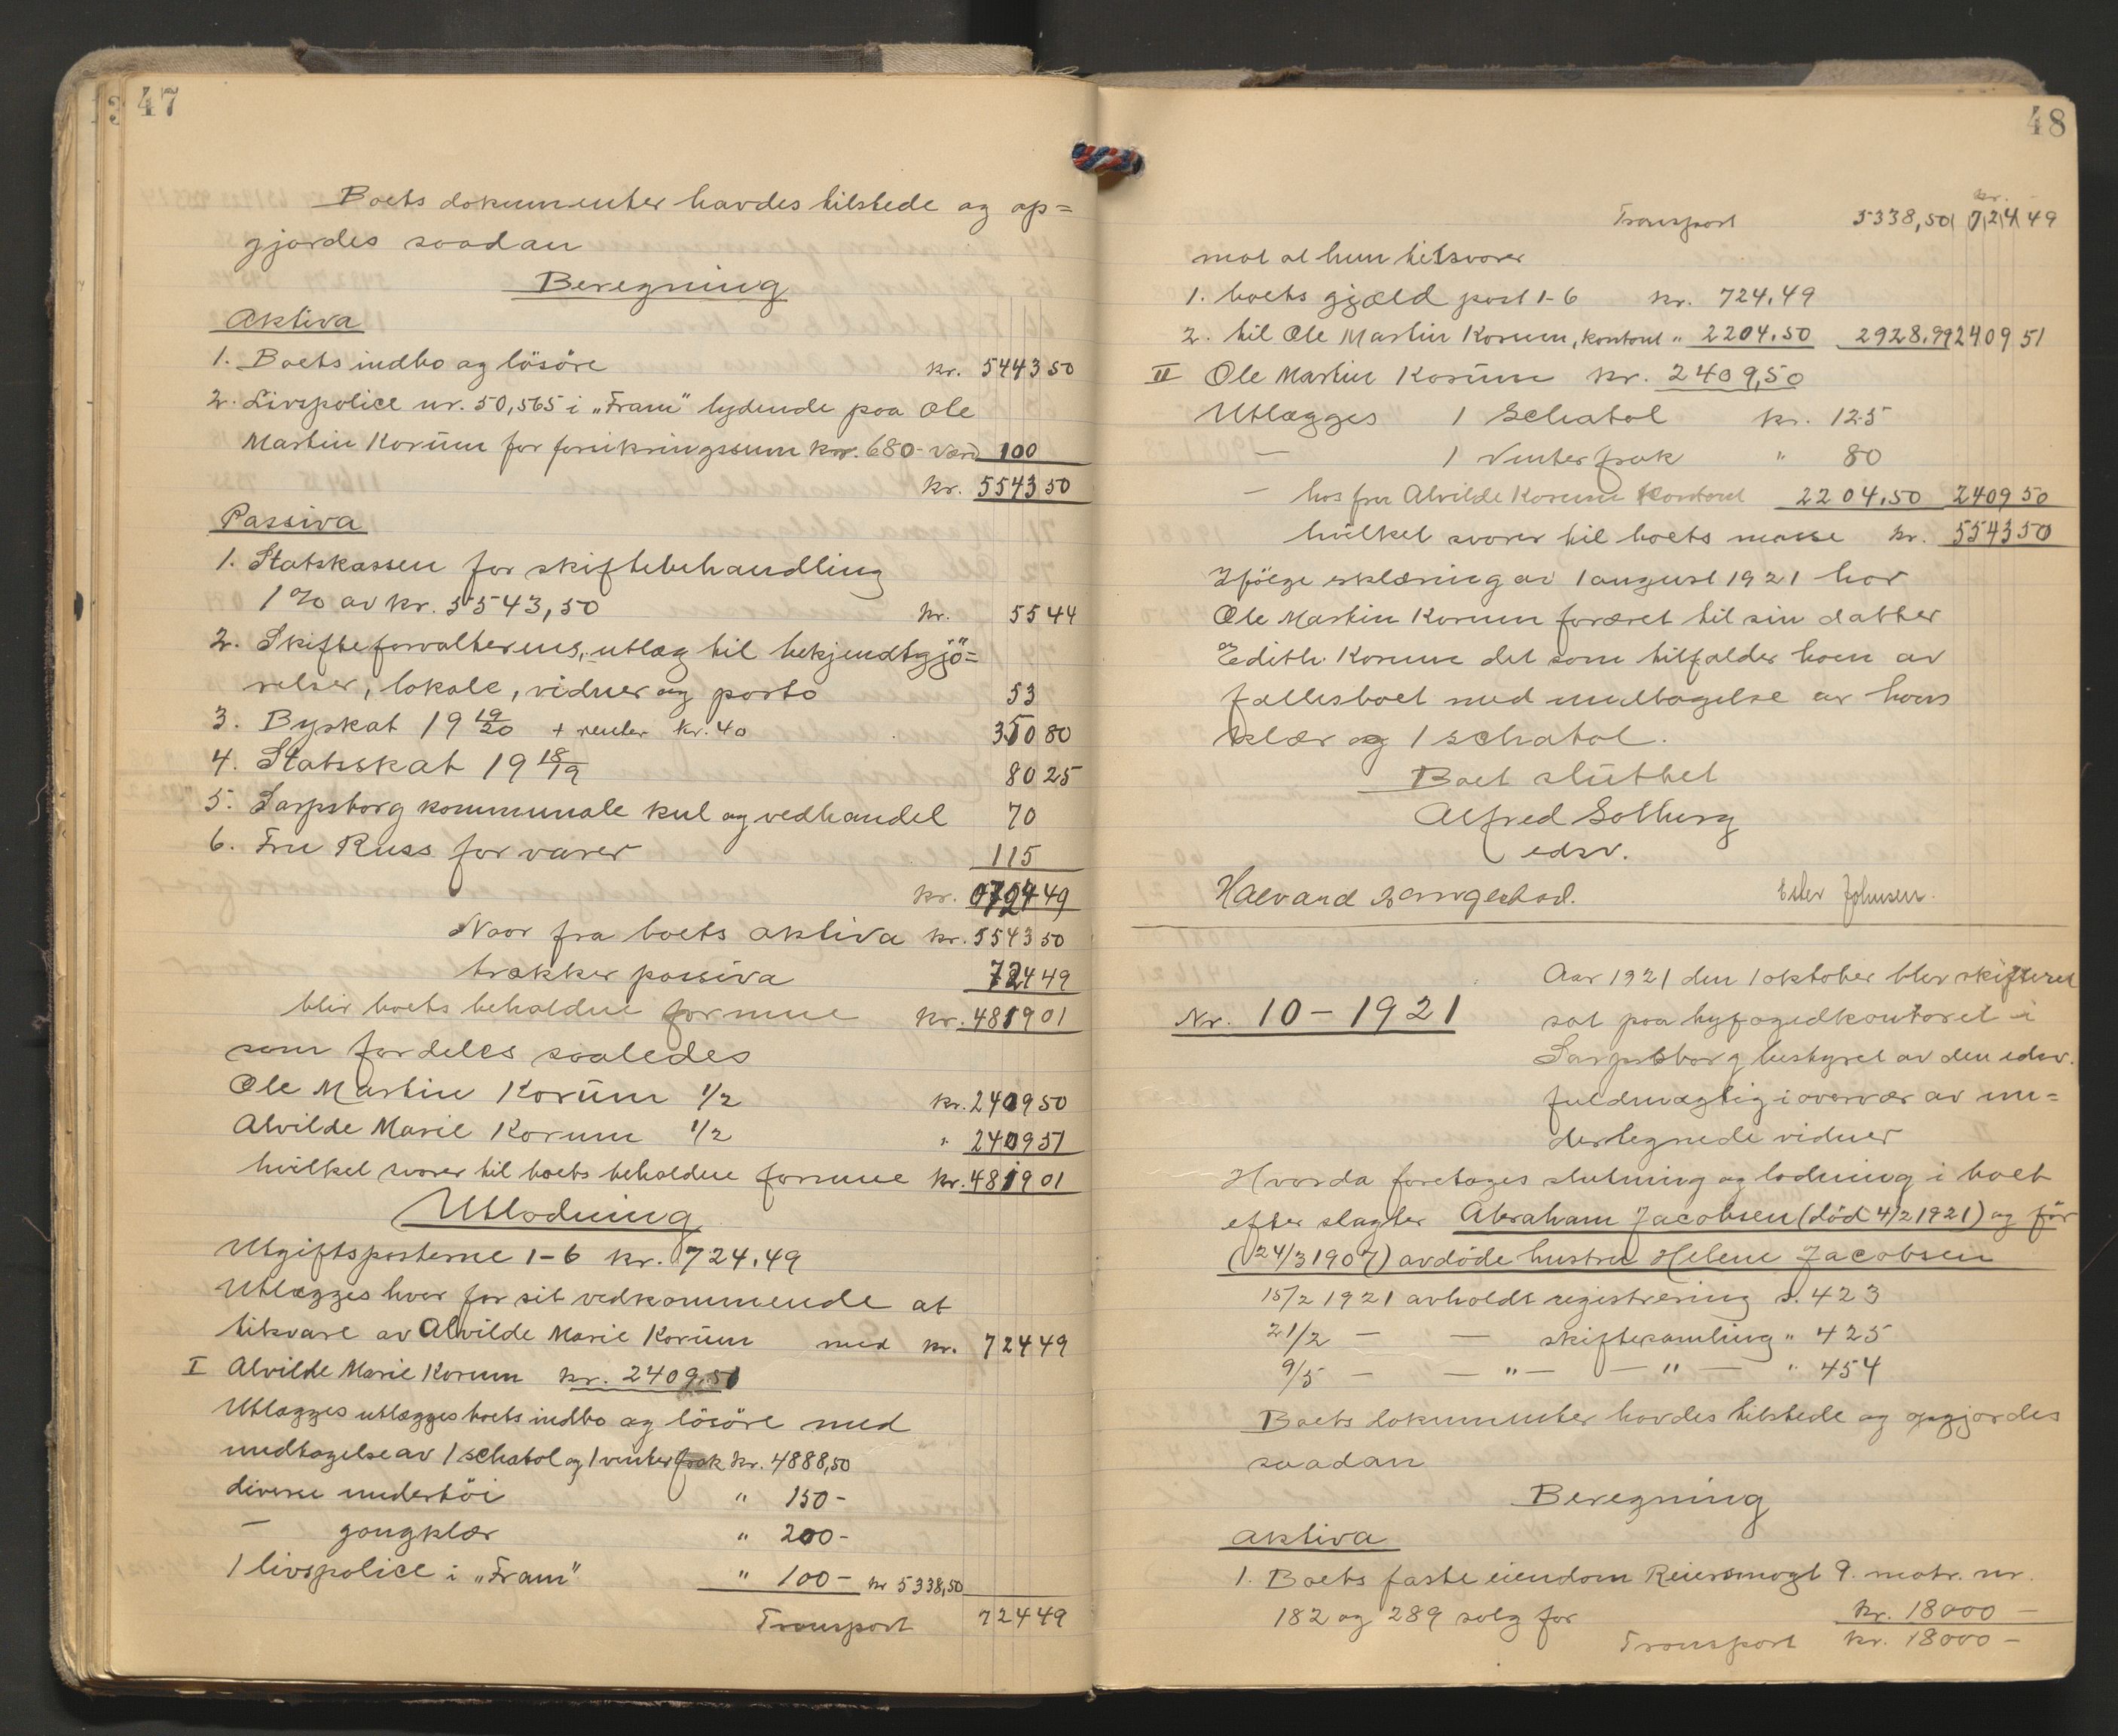 47
Boets dokumenter havdes tilstede og op=
gjordes saadan
Beregning
Aktiva
1. Boets indbo og lösöre kr. 5443 50
2. Livspolice nr. 50,565 i „Fram" lydende paa Ole
Martin Korüm for forsikringssum kr. 680- værd 100
kr. 5543 50
Passiva
1. Statskassen for skiftebehandling
1 % av kr. 5543,50 kr. 55 44
2. Skifteforvalterens, utlæg til bekjendtgjö=
relser, lokale, vidner og porto 53
3. Byskat 19 19/20 + renter kr. 40 350 80
4. Statsskat 19 18/19 80 25
5. Sarpsborg kommunale kul og vedhandel 70
6. Fru Russ for varer 115
kr. 724 49
Naar fra boets aktiva kr. 5543 50
trækker passiva 724 49
blir boets beholdne formue kr. 4819 01
som fordeles saaledes
Ole Martin Korüm 1/2 kr. 2409 50
Alvilde Marie Korum 1/2 " 2409 51
hvilket svarer til boets beholdne formue kr. 4819 01
Utlodning
Utgiftsposterne 1-6 kr. 724.49
Utlægges hver for sit vedkommende at
tilsvare av Alvilde Marie Korüm med kr. 724 49
I Alvilde Marie Korum kr. 2409.51
Utlægges utlægges boets indbo og lösöre med
undtagelse av 1 schatol og 1 vinterfrak kr. 4888,50
diverse undertöi " 150-
— gangklær " 200-
1 livspolice i „Fram" " 100- kr 5338,50
Transport 724 49
48
kr.
Transport 5338,50 724 49
mot at hun tilsvarer
1. boets gjæld post 1-6 kr. 724.49
2. til Ole Martin Korum, kontant " 2204.50 2928.99 2409 51
II Ole Martin Korüm kr. 2409,50
Utlægges 1 Schatol kr. 125
— 1 Vinterfrak " 80
— hos fru Alvilde Korum kontant 2204.50 2409 50
hvilket svarer til boets masse kr. 5543 50
Ifölge erklæring av 1 august 1921 har
Ole Martin Korum foræret til sin datter
Edith Korum det som tilfalder ham av
fællesboet med undtagelse av hans
klær og 1 schatol.
Boet sluttet
Alfred Solberg
edsv.
Halvard Ester Johnsen.
Nr. 10 - 1921
Aar 1921 den 1 oktober blev skifteret
sat paa byfogedkontoret i
Sarpsborg bestyret av den edsv.
fuldmægtig i overvær av un=
dertegnede vidner
Hvorda foretages slutning og lodning i boet
efter slagter Abraham Jacobsen (död 4/2 1921) og för
(24/3 1907) avdöde hustru Helene Jacobsen
15/2 1921 avholdt registrering s. 423
21/2 — — skiftesamling " 425
9/5 — — " — — " — " 454
Boets dokumenter havdes tilstede og opgjordes
saadan
Beregning
Aktiva
1. Boets faste eiendom Reiersmogt 9. matr. nr.
182 og 289 solg for kr. 18000 —
Transport kr. 18000 —